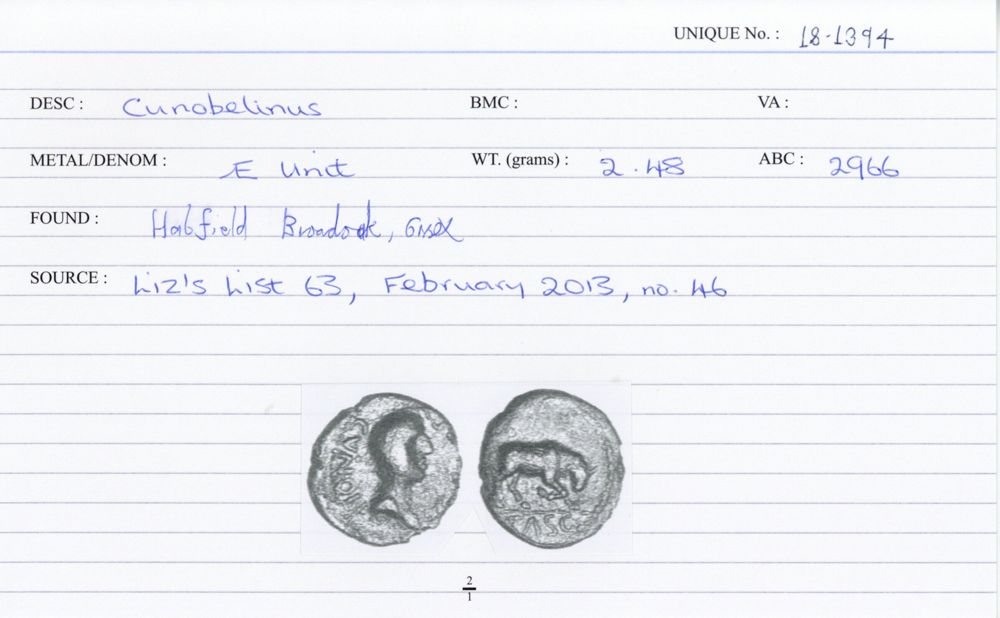 UNIQUE No. : 18-1394
DESC : Cunobelinus BMC : VA :
METAL/DENOM : Æ Unit WT. (grams) : 2.48 ABC : 2966
FOUND : Hatfield Broadoak, Essex
SOURCE : Liz's List 63, February 2013, no. 46
CVNOB
TASC
2
1